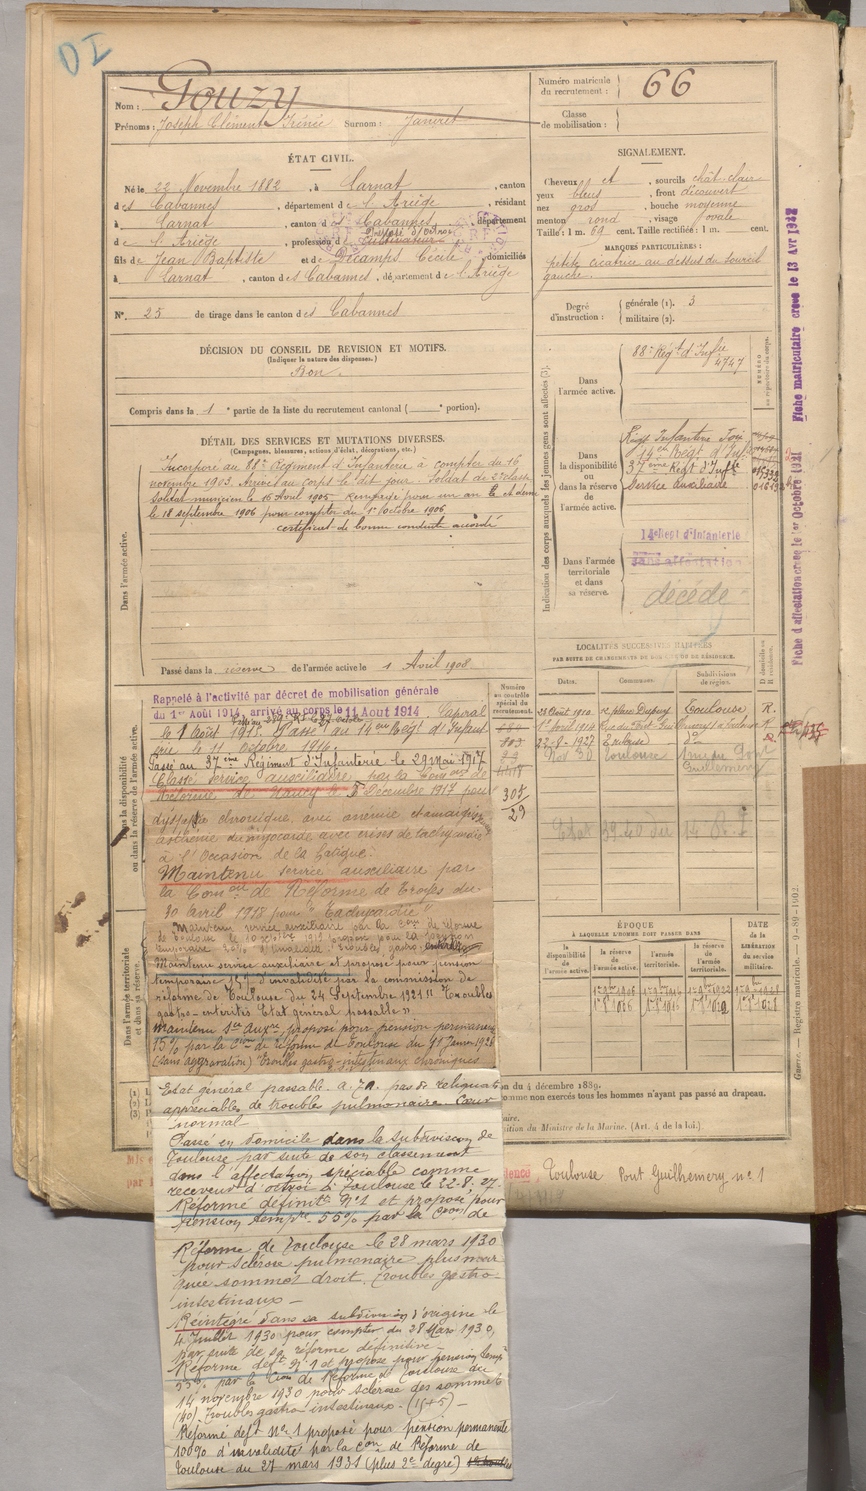 D I
Nom : Gouzy
Prénoms : Joseph Clément Irénée Surnom : Janvret
Numéro matricule du recrutement : 66
Classe de mobilisation :
ÉTAT CIVIL.
Né le 22 Novembre 1882, à Larnat, canton
des Cabannes, département de l'Ariège, résidant
à Larnat, canton des Cabannes, département
de l'Ariège, profession de cultivateur
fils de Jean Baptiste et de Décamps Cécile, domiciliés
à Larnat, canton des Cabannes, département de l'Ariège
N° 25 de tirage dans le canton des Cabannes
DÉCISION DU CONSEIL DE REVISION ET MOTIFS.
(Indiquer la nature des dispenses.)
Bon.
Compris dans la 1e partie de la liste du recrutement cantonal ( portion).
SIGNALEMENT.
Cheveux et sourcils chât clair
yeux bleus, front découvert
nez gros, bouche moyenne
menton rond, visage ovale
Taille : 1 m. 69 cent. Taille rectifiée : 1 m. cent.
MARQUES PARTICULIÈRES :
petite cicatrice au dessus du sourcil
gauche.
Degré d'instruction : générale (1). 3
militaire (2).
Indication des corps auxquels les jeunes gens sont affectés (3).
Dans l'armée active.
88e Régt d'Infie
4747
Dans la disponibilité ou dans la réserve de l'armée active.
Régt Infanterie Foix
14eme Régt d'Inf
37eme Régt d'Infie
Service auxiliaire
Dans l'armée territoriale et dans sa réserve.
14e Regt d'Infanterie
sans affectation
décédé
Fiche d'affectation créée le 1er Octobre 1931
Fiche matriculaire créée le 13 Avr
DÉTAIL DES SERVICES ET MUTATIONS DIVERSES.
(Campagnes, blessures, actions d'éclat, décorations, etc.)
Dans l'armée active.
Incorporé au 88e Régiment d'Infanterie à compter du 16
novembre 1903. Arrivé au corps le dit jour. Soldat de 2e classe
Soldat musicien le 16 Avril 1905. Rengagé pour un an
le 18 septembre 1906 pour compter du 1er Octobre 1906.
certificat de bonne conduite accordé
Passé dans la réserve de l'armée active le 1 Avril 1908
LOCALITÉS SUCCESSIVES HABITÉES
PAR SUITE DE CHANGEMENTS DE DOMICILE OU DE RÉSIDENCE.
Dates. Communes. Subdivisions de région. D domicile ou R résidence.
place Dupuy Toulouse R.
22-8-1927 Toulouse do
Nov 30 Toulouse
Guillemery
Numéro au contrôle spécial du recrutement.
307
29
Dans la disponibilité ou dans la réserve de l'armée active.
Rappelé à l'activité par décret de mobilisation générale
du 1er Août 1914, arrivé au corps le 11 Août 1914 Caporal
le 1 Août 1915. Passé au 14eme Régt d'Infan
terie le 11 octobre 1916.
Passé au 37eme Régiment d'Infanterie le 29 Mai 1917
Classé service auxiliaire par la Comon de
Réforme de Nancy le Décembre 1917 pour
dyspepsie chronique, avec anémie et amaigrisst
asthénie du myocarde avec crises de tachycardie
à l'Occasion de la fatigue.
Maintenu service auxiliaire par
la Comon de Réforme de Troyes du
30 avril 1918 pour "Tachycardie"
Maintenu service auxiliaire par la Con de réforme
Dans l'armée territoriale et dans sa réserve.
Maintenu service auxiliaire et proposé pour pension
temporaire 15% d'invalidité par la commission de
réforme de Toulouse du 24 Septembre 1921 "Troubles
gastro-entérités. Etat général passable".
Maintenu Sce Auxre, proposé pour pension permanente
15% par la Con de réforme de Toulouse du Janvier 1926
(sans aggravation) Troubles gastro-intestinaux chroniques
Etat général passable. pas de reliquats
appréciables de troubles pulmonaire. Cœur
normal
Passé en domicile dans la subdivision de
Toulouse par suite de son classement
dans l'affectation spéciale comme
receveur d'octroi à Toulouse le 22-8-27.
Réformé définitif N°1 et proposé pour
pension tempre 55% par la Con de
Réforme de Toulouse le 28 mars 1930
pour sclérose pulmonaire
sommet droit, troubles gastro-
intestinaux —
Réintégré dans sa subdivision d'origine le
4 Juillet 1930 pour compter du 28 Mars 1930,
par suite de sa réforme définitive —
Réformé deft N°1 et proposé pour pension temp
55% par la Con de Réforme de Toulouse du
14 novembre 1930 pour sclérose des sommets
(40). Troubles gastro-intestinaux. (15+5) —
Réformé deft N° 1 proposé pour pension permanente
100% d'invalidité par la Con de Réforme de
Toulouse du 27 mars 1931 (plus 2e degré)
ÉPOQUE
À LAQUELLE L'HOMME DOIT PASSER DANS
la disponibilité de l'armée active. la réserve de l'armée active. l'armée territoriale. la réserve de l'armée territoriale.
DATE de la LIBÉRATION du service militaire.
du 4 décembre 1889.
comme non exercés tous les hommes n'ayant pas passé au drapeau.
sition du Ministre de la Marine. (Art. 4 de la loi.)
Toulouse Pont Guilhemery n° 1
Guerre. — Registre matricule. — 9-89-1902.